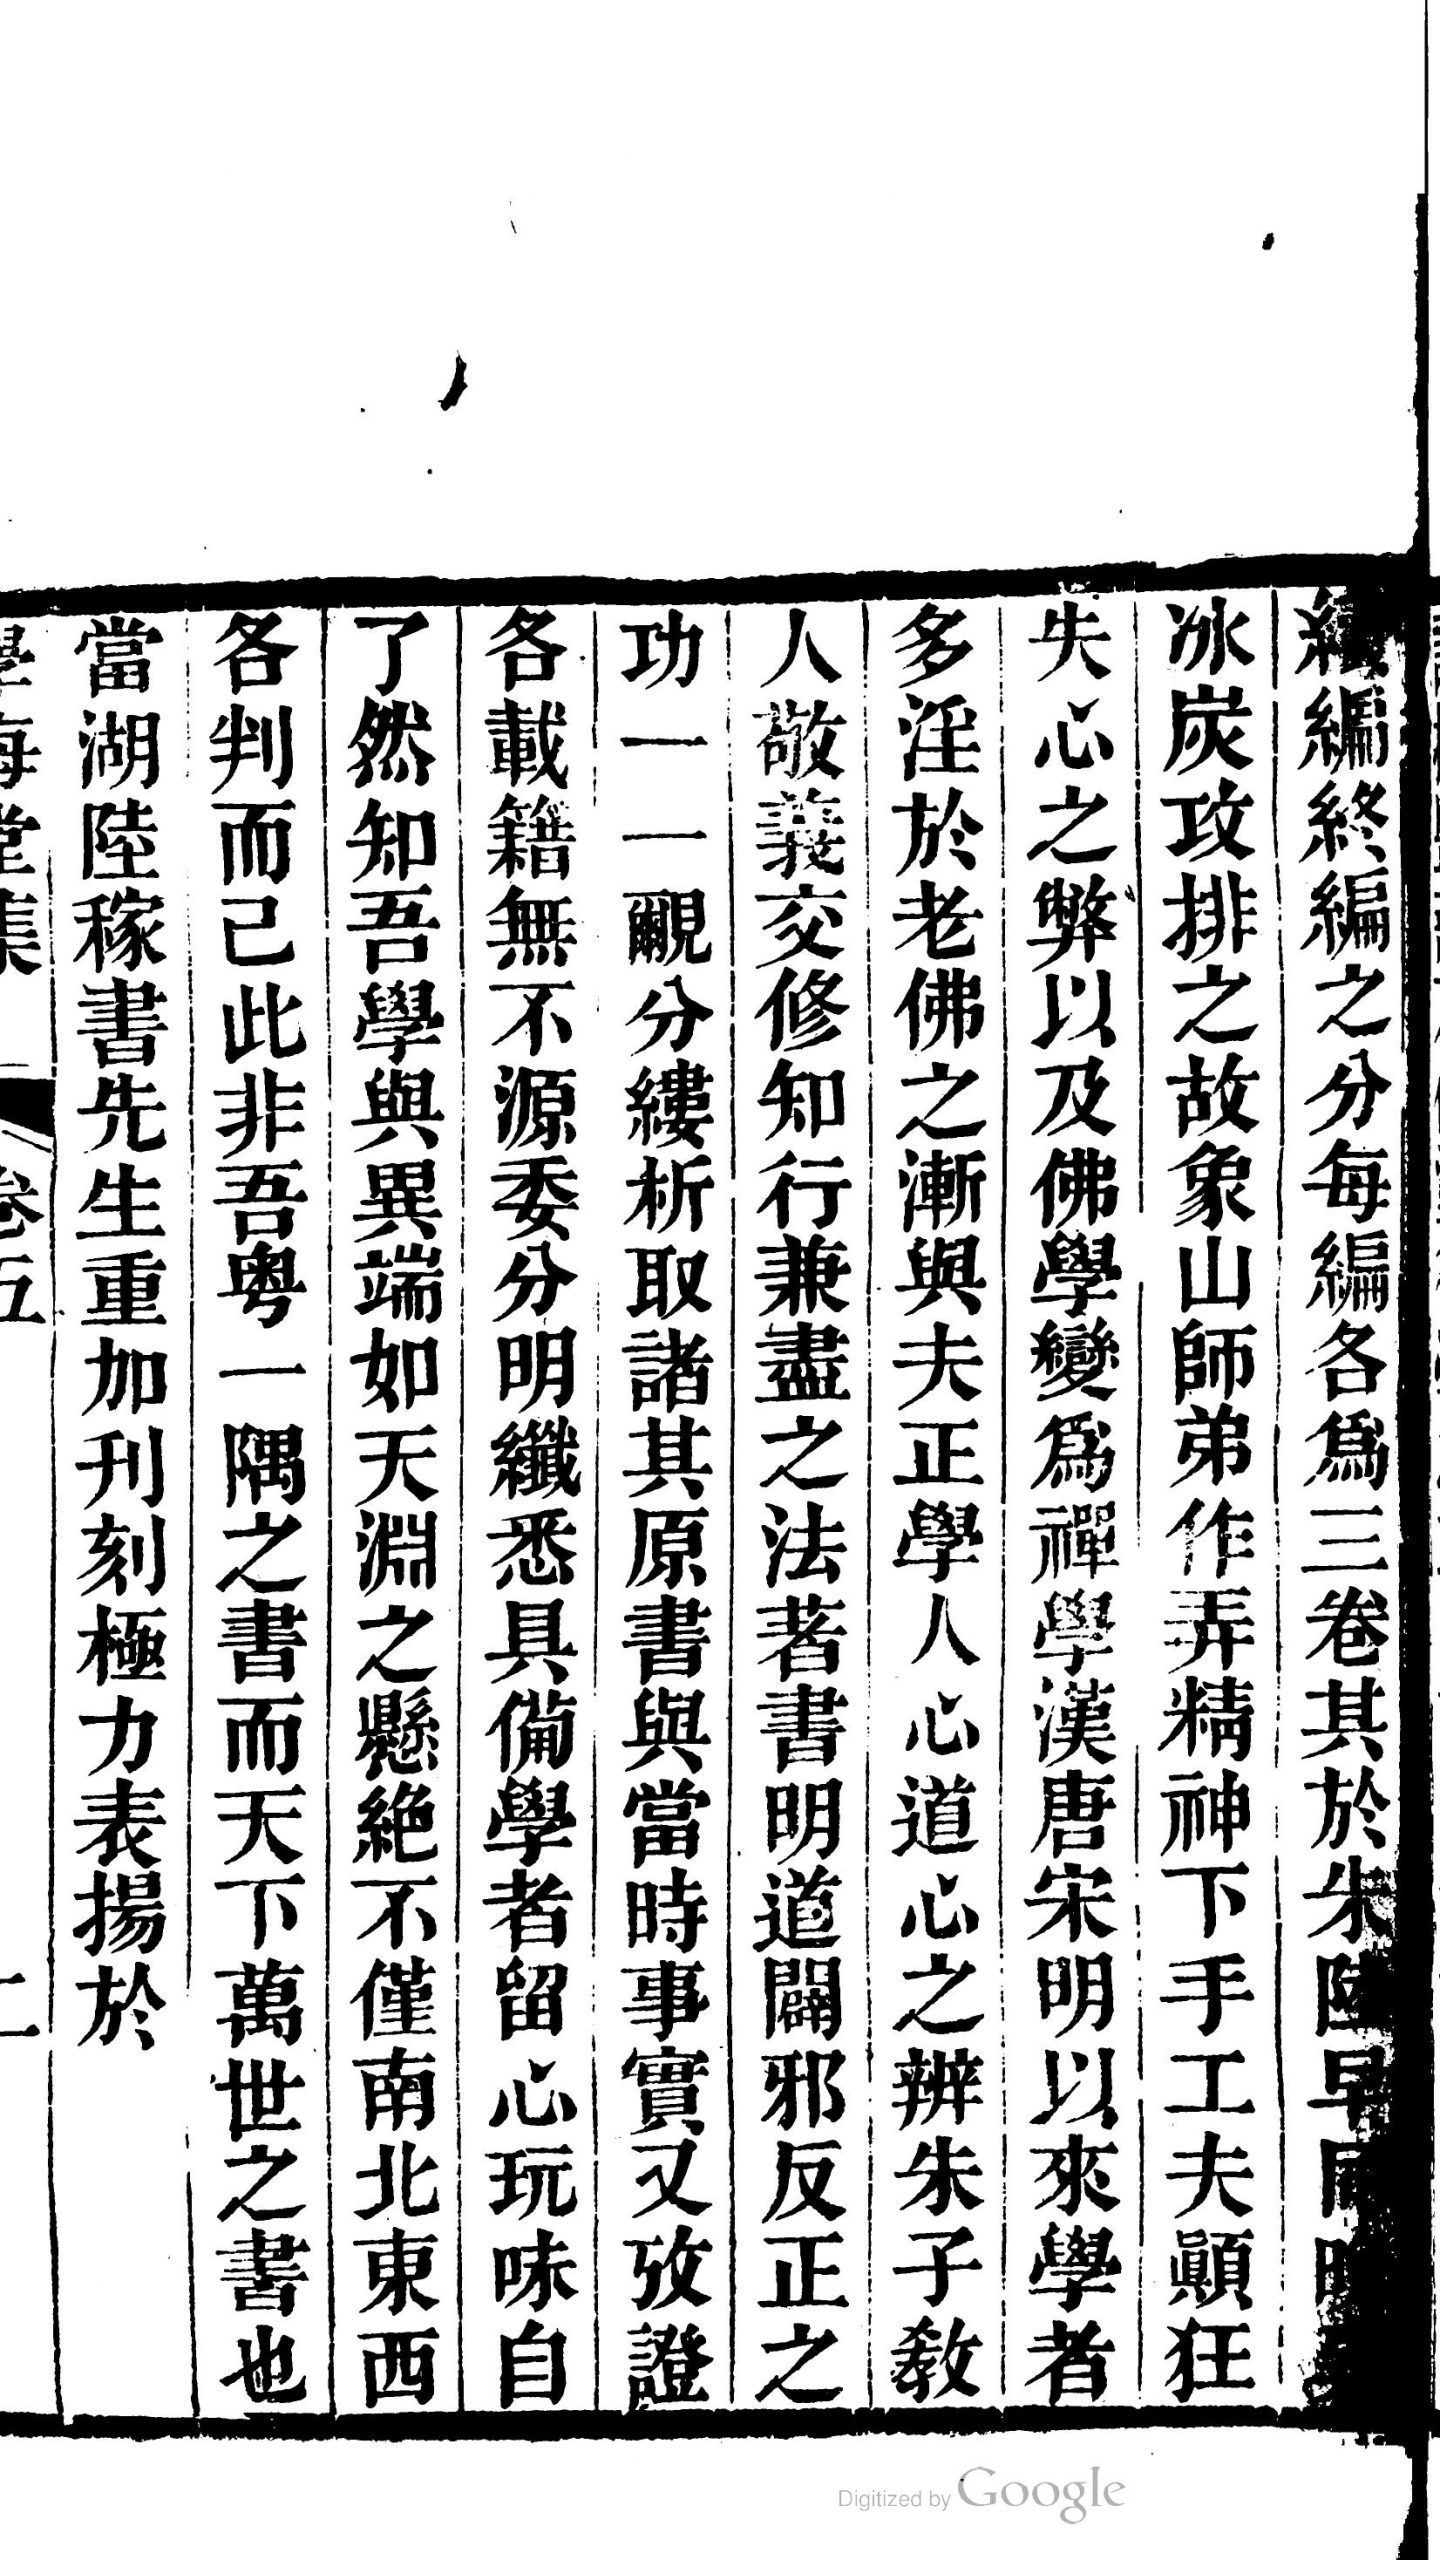 續編終編之分每編各爲三卷其於朱陸早同晚
冰炭攻排之故象山師弟作弄精神下手工夫顚狂
失心之弊以及佛學變爲禪學漢唐宋明以來學者
多淫於老佛之漸與夫正學人心道心之辨朱子敎
人敬義交修知行兼盡之法著書明道闢邪反正之
功一一覼分縷析取諸其原書與當時事實又攷證
各載籍無不源委分明纖悉具備學者留心玩味自
了然知吾學與異端如天淵之懸絶不僅南北東西
各判而已此非吾粤一隅之書而天下萬世之書也
當湖陸稼書先生重加刊刻極力表揚於
學海堂集 卷五 二
Digitized by Google